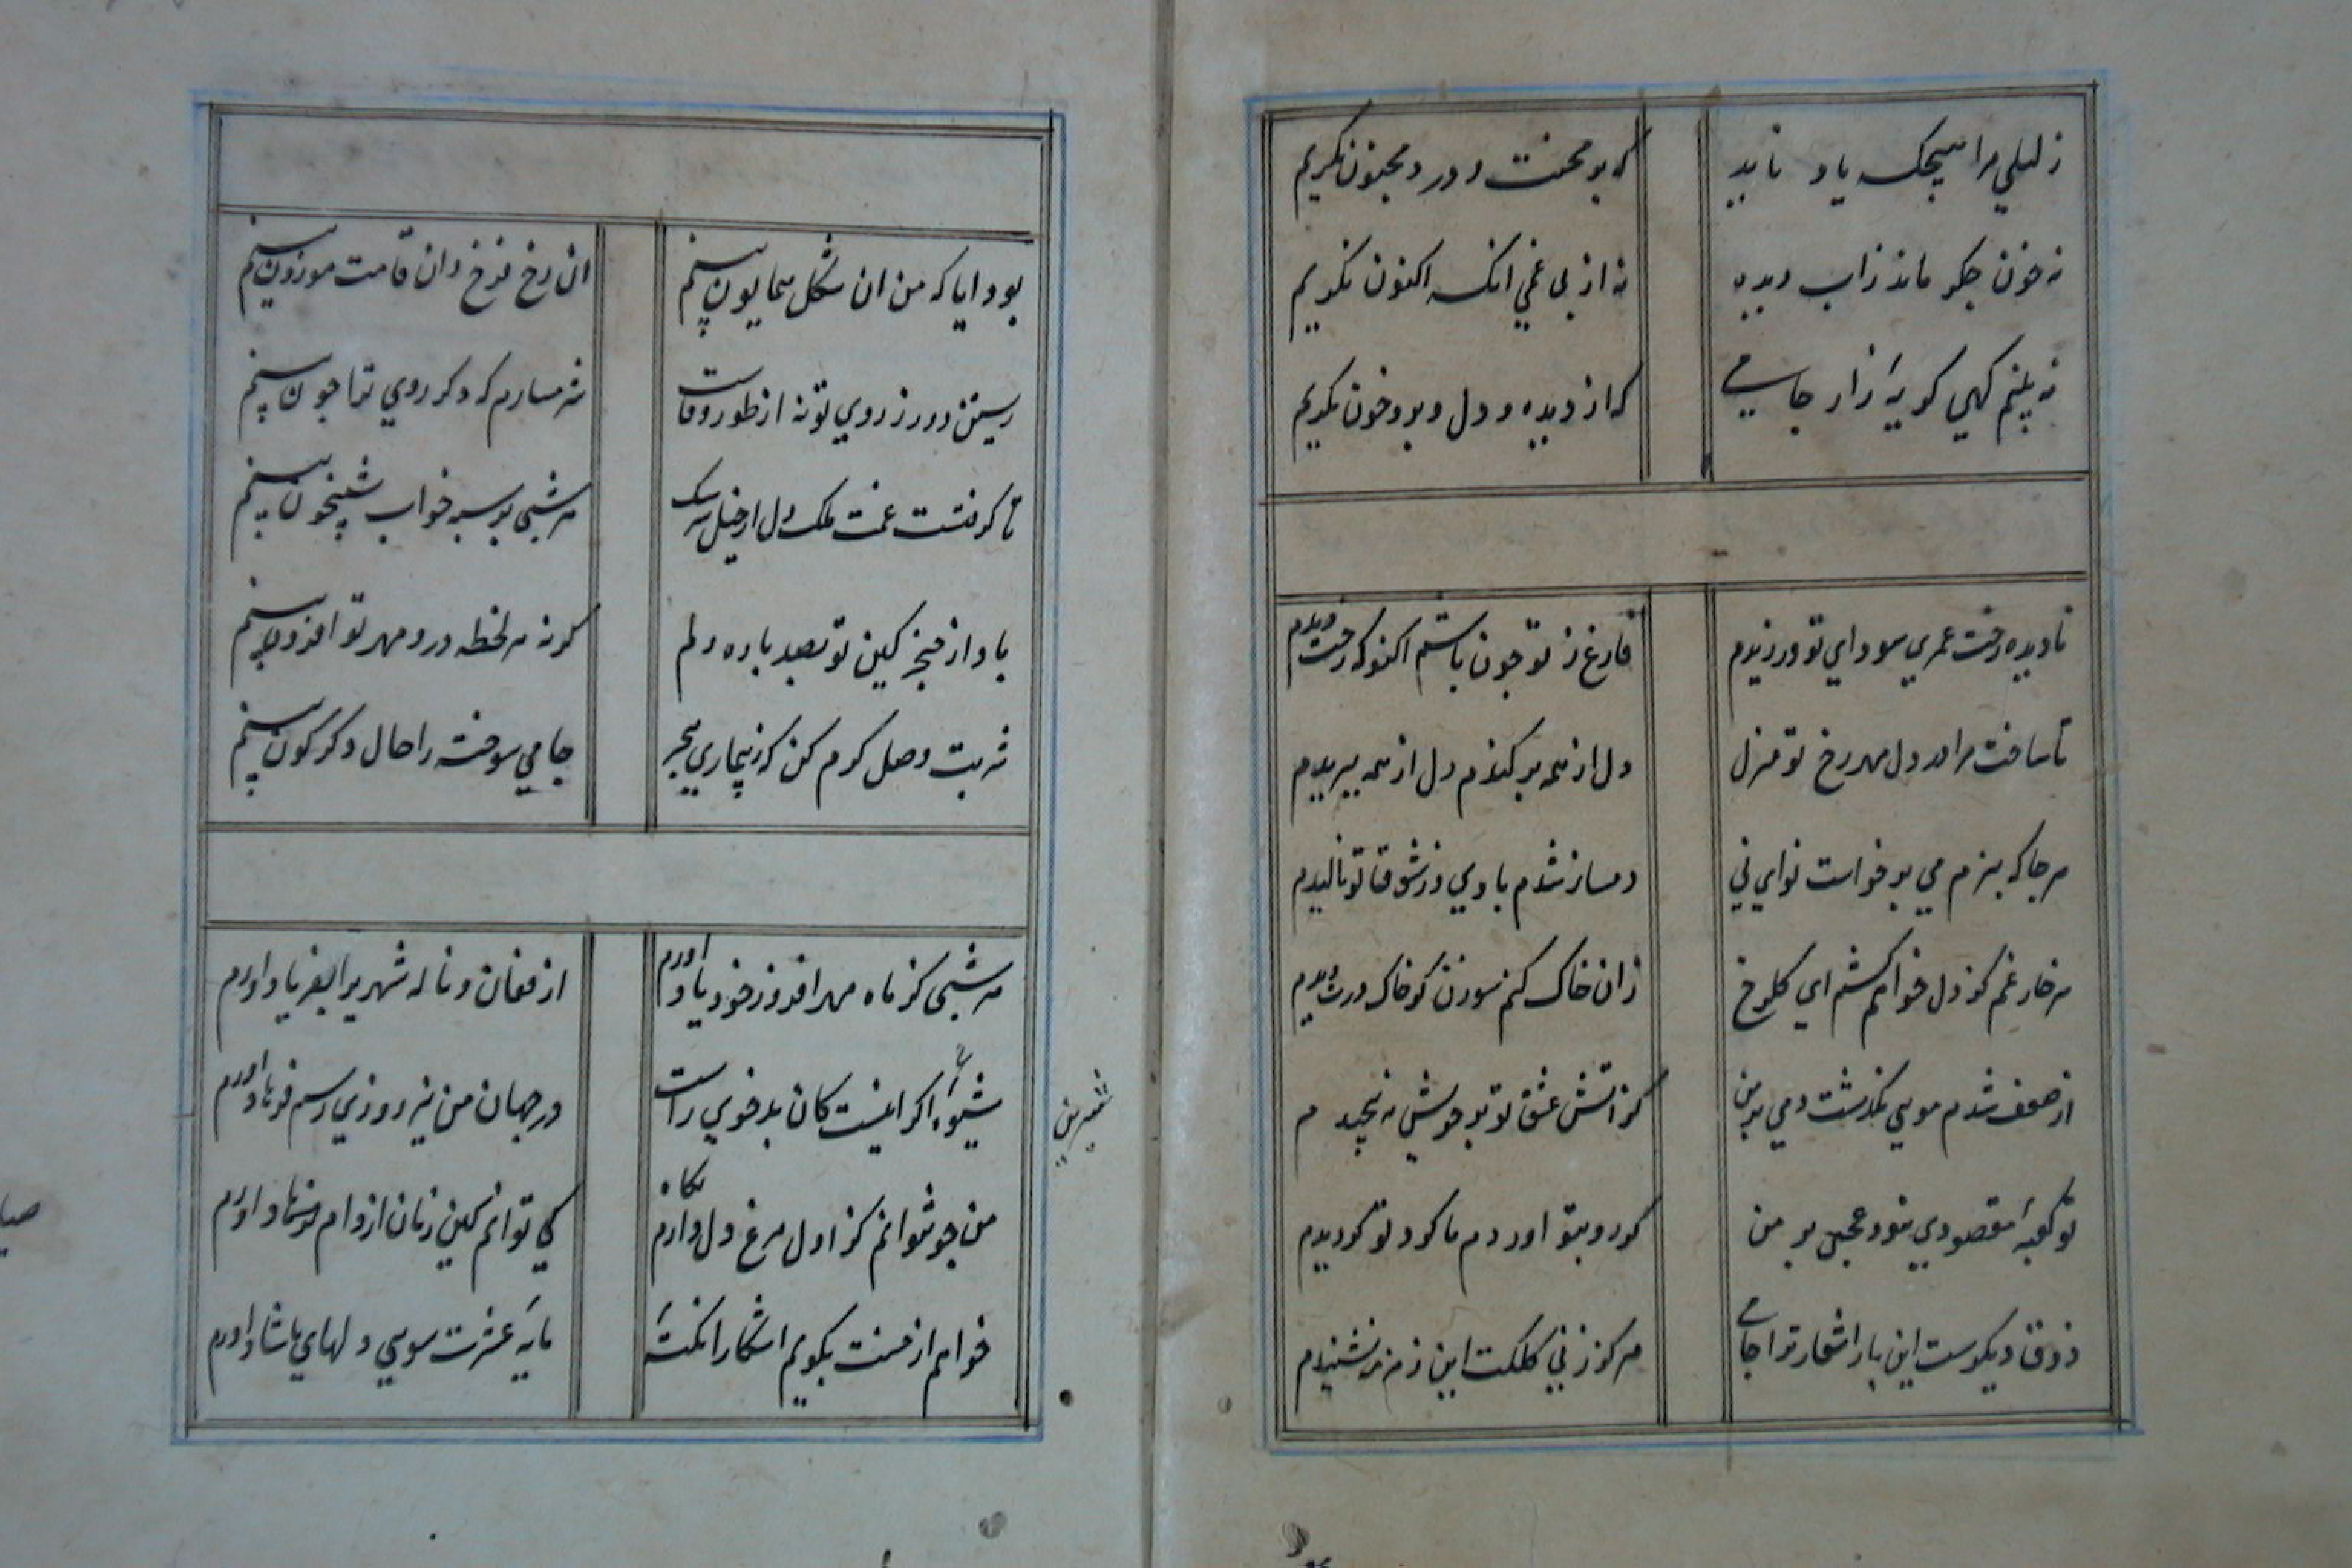 ز لیلی مرا هیچکه یاد ناید که بر محنت و درد مجنون نکریم
نه خون جکر ماند نه آب دیده نه از بی غمی انکه اکنون نکریم
نه بینم کهی کریهٔ زار جامی که از دیده و دل برو خون نکریم
نادیده رخت عمری سودای تو ورزیدم فارغ ز تو جون باشم اکنون که رخت دیدم
تا ساخت مرا در دل مهر رخ تو منزل دل از همه برکندم دل از همه ببریدم
هر جا که ببزم می برخواست نوای نی دمساز شدم با وی وز شوق تو نالیدم
هر خار غم کز دل خواهم کشم ای کلرخ زان خاک کنم سوزن کز خاک درت جیدم
از ضعف شدم مویی نکذشت دمی بر من کز اتش عشق تو بر خویش نه پیچیدم
تو کعبهٔ مقصودی نبود عجبی بر من کر رو بتو اوردم یا کرد تو کردیدم
ذوق دیکرست این بار اشعار ترا جامی هرکز ز نی کلکت این زمزمه نشنیدم
بود ایا که من ان شکل همایون بینم ان رخ فرخ و ان قامت موزون بینم
زیستن دور ز روی تو نه از طور وفاست شرمسارم که دکر روی ترا جون بینم
تا کرفتست غمت ملک دل از خیل سرشک هر شبی بر سپه خواب شبیخون بینم
باد از خنجر کین تو بصد پاره دلم کر نه هر لحظه درو مهر تو افزون بینم
شربت وصل کرم کن که ز بیماری هجر جامی سوخته را حال دکرکون بینم
هر شبی کز ماه مهر افروز خود یاد اورم از فغان و ناله شهریرا بفریاد اورم
شیوهٔ اکر اینست کان بدخوی راست در جهان من نیز روزی رسم فرهاد اورم
شیرین
من جو نتوانم کز اول مرغ دل دارم نکاه کی توانم کاین زمان از دام صیاد اورم
خواهم از حسنت بکویم اشکارا نکتهٔ مایهٔ عشرت سوی دلهای ناشاد اورم